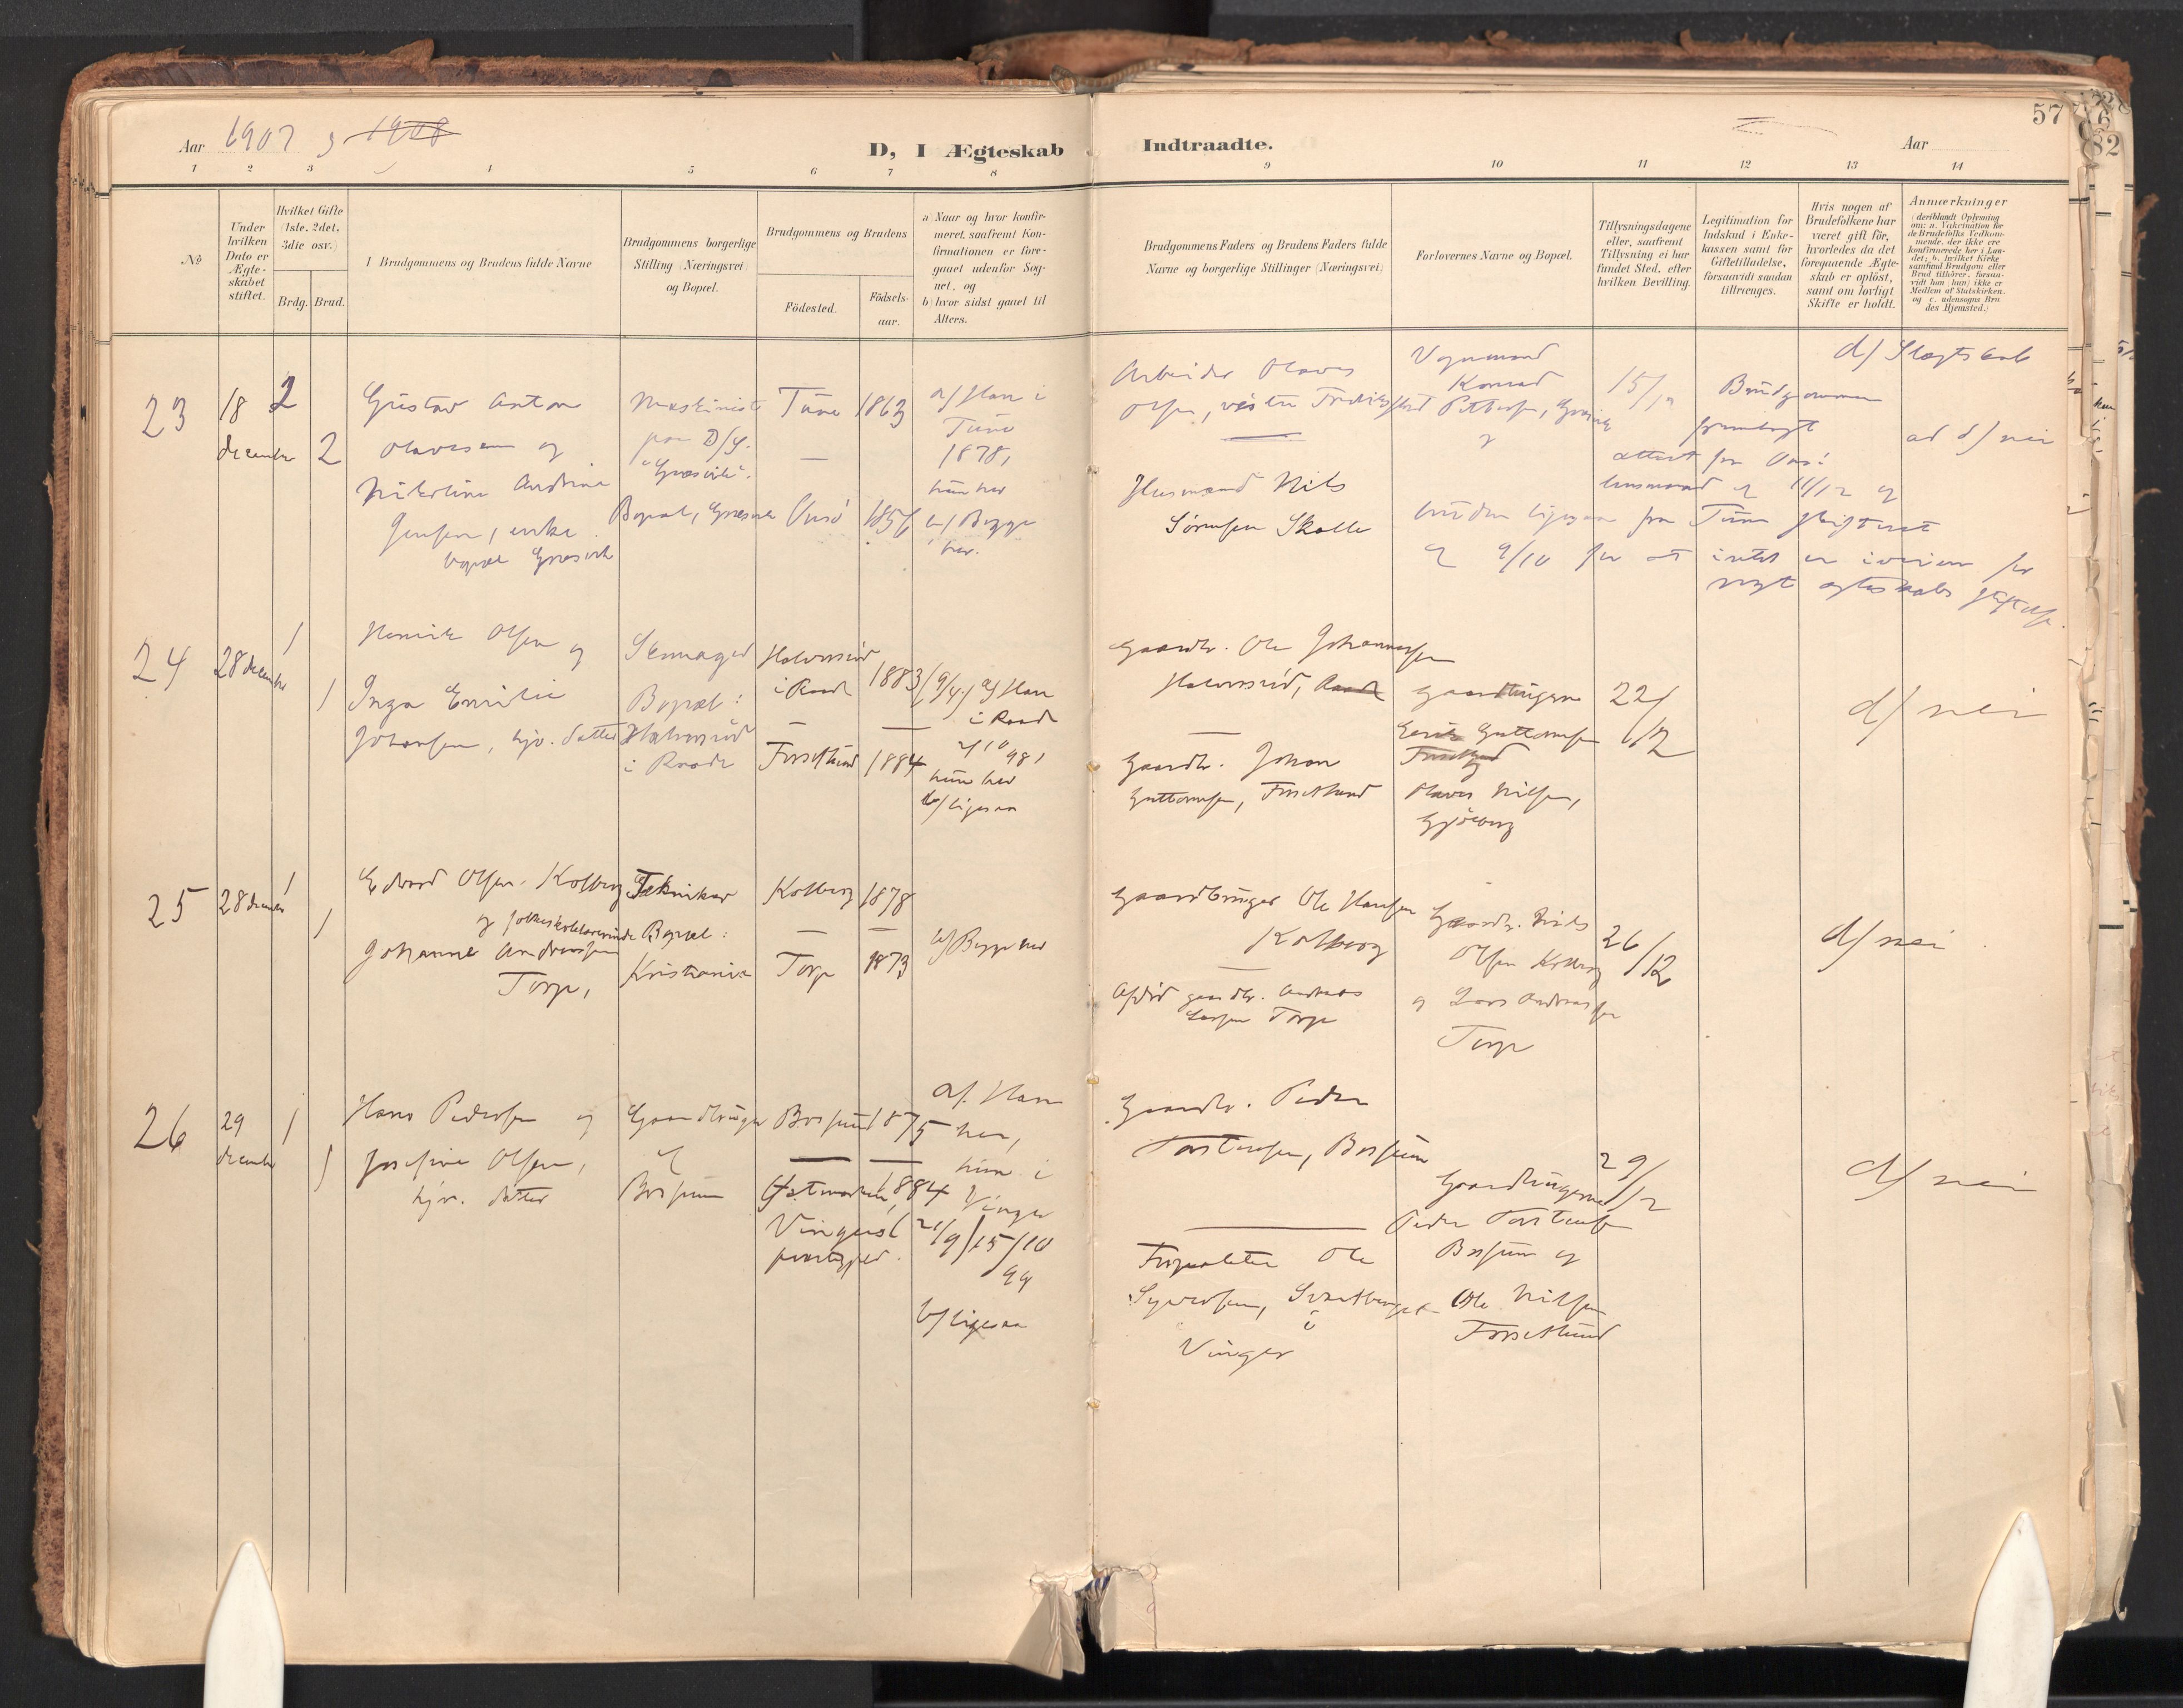 57
Aar 1907 og 1908
D, I Ægteskab Indtraadte.
Aar
1 2 3 4 5 6 7 8 9 10 11 12 13 14
No
Under hvilken Dato er Ægteskabet stiftet.
Hvilket Gifte (1ste, 2det, 3die osv.)
Brdg. Brud.
Brudgommens og Brudens fulde Navne
Brudgommens borgerlige Stilling (Næringsvei) og Bopæl.
Brudgommens og Brudens
Födested. Födsels-aar.
a) Naar og hvor konfir-
meret, saafremt Kon-
firmationen er fore-
gaaet udenfor Sog-
net, og
b) hvor sidst gaaet til
Alters.
Brudgommens Faders og Brudens Faders fulde
Navne og borgerlige Stillinger (Næringsvei)
Forlovernes Navne og Bopæl.
Tillysningsdagene
eller, saafremt
Tillysning ei har
fundet Sted, efter
hvilken Bevilling.
Legitimation for
Indskud i Enke-
kassen samt for
Giftetilladelse,
forsaavidt saadan
tiltrænges.
Hvis nogen af
Brudefolkene har
været gift för,
hvorledes da det
foregaaende Ægte-
skab er oplöst,
samt om lovligt
Skifte er holdt.
Anmærkninger
(deriblandt Oplysning
om: a. Vakcination for
de Brudefolks Vedkom-
mende, der ikke ere
konfirmerede her i Lan-
det; b. hvilket Kirke
samfund Brudgom eller
Brud tilhörer, forsaa-
vidt han (hun) ikke er
Medlem af Statskirken,
og c. udensogns Bru
des Hjemsted.)
23
18 december
2
2
Gustav Anton
Olavesen og
Nikoline Andrine
Jensen, enke
bopæl Græsvik
Maskinist
paa D/S.
"Græsvik".
Bopæl, Græsvik
Tune 1863
— Onsö 1856
a/ Han i
Tune
1878,
hun her
b/ Begge
her.
Arbeider Olaves
Olsen, vestre Fredrikstad
Husmand Nils
Sörensen Skolle
Vognmand
Konrad Pettersen, Græsvik
15/12
Brudgommen
fremlagt
attest fra Onsö
lensmand af 11/12 og
bruden ligesaa fra Tune skifteret
af 9/10 for at intet er iveien for
nyt ægteskabs stiftelse.
d/ Slægtskab
ad d/ nei
24
28 december
1
1
Henrik Olsen og
Inga Emilie
Johansen, hjv. datter
Skomager
Bopæl:
Halvorsröd
i Raade
Halvorsröd
i Raade 1883 (9/4)
—
Forsetlund 1884
a/ Han
i Raade
2/10 98,
hun her
b/ ligesaa
Gaardbr. Ole Johannesen
Halvorsröd, Raade
Gaardbr. Johan
Guttormsen, Forsetlund
Gaardbrugerne
Erik Guttormsen
Forsetlund
Olaves Nilsen,
Gjölberg
22/12
d/ nei
25
28 december
1
1
Edvard Olsen Kolberg
og folkeskolelærerinde
Johanne Andreassen
Torp,
Tekniker
Bopæl:
Kristiania
Kolberg 1878
— —
Torp 1873
b/ Begge her
Gaardbruger Ole Hansen
Kolberg
Afdöd gaardbr. Andreas
Larsen Torp
Gaardbr. Nils
Olsen Kolberg
og Lars Andreassen
Torp
26/12
d/ nei
26
29 december
1
1
Hans Pedersen og
Josefine Olsen,
hjv. datter
Gaardbruger
af
Borsum
Borsum 1875
— —
Østmarka, 1884
Vingers 21/9
præstegjeld.
a/. Han
her,
hun i
Vinger
15/10
99
b/ ligesaa
Gaardbr. Peder
Torstensen, Borsum
Forpakter Ole
Syversen, Svartberget
i
Vinger
Gaardbrugerne
Peder Torstensen
Borsum og
Ole Nilsen
Forsetlund
29/12
d/ nei